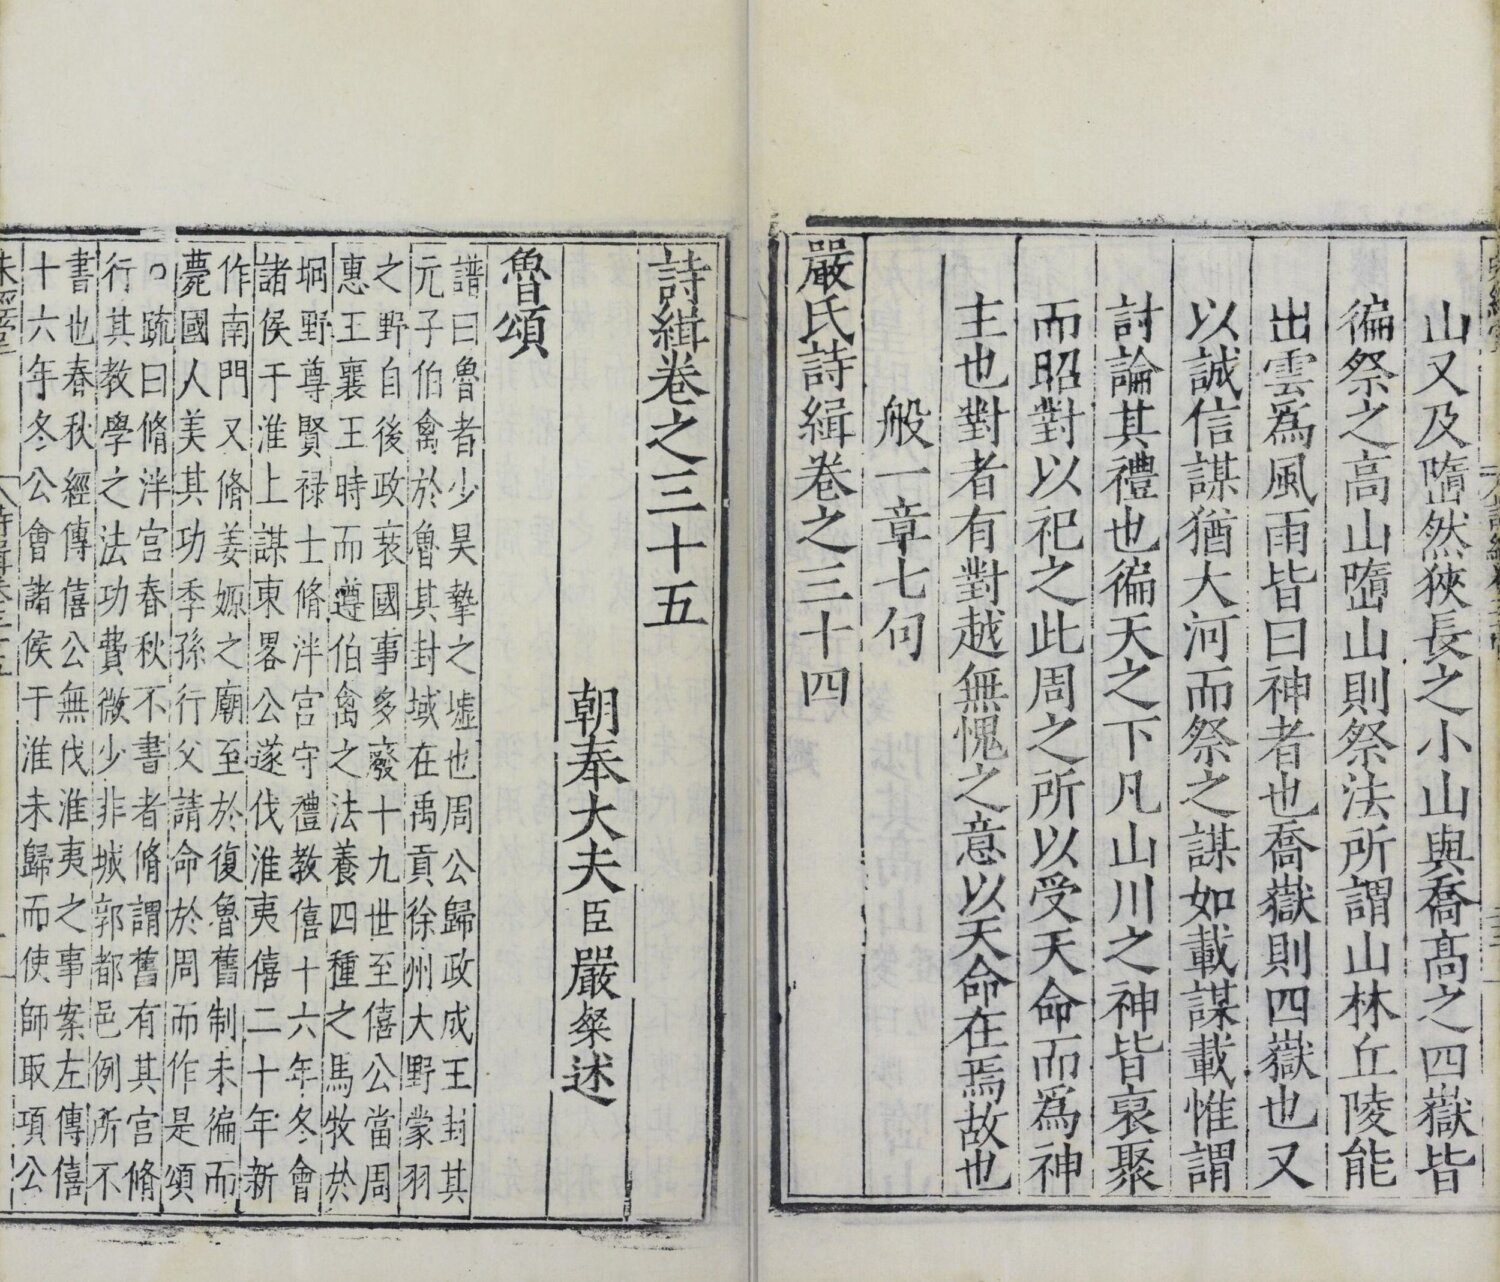 山又及墮然狹長之小山與喬高之四嶽皆
徧祭之高山墮山則祭法所謂山林丘陵能
出雲爲風雨皆曰神者也喬嶽則四嶽也又
以誠信謀猶大河而祭之謀如載謀載惟謂
討論其禮也徧天之下凡山川之神皆裒聚
而昭對以祀之此周之所以受天命而爲神
主也對者有對越無愧之意以天命在焉故也
般一章七句
嚴氏詩緝卷之三十四
詩緝卷之三十五
朝奉大夫臣嚴粲述
魯頌
譜曰魯者少昊摯之墟也周公歸政成王封其
元子伯禽於魯其封域在禹貢徐州大野蒙羽
之野自後政衰國事多廢十九世至僖公當周
惠王襄王時而遵伯禽之法養四種之馬牧於
坰野尊賢祿士脩泮宮守禮教僖十六年冬會
諸侯于淮上謀東畧公遂伐淮夷僖二十年新
作南門又脩姜嫄之廟至於復魯舊制未徧而
薨國人美其功季孫行父請命於周而作是頌
○疏曰脩泮宮春秋不書者脩謂舊有其宮脩
行其教學之法功費微少非城郭都邑例所不
書也春秋經傳僖公無伐淮夷之事案左傳僖
十六年冬公會諸侯于淮未歸而使師取項公